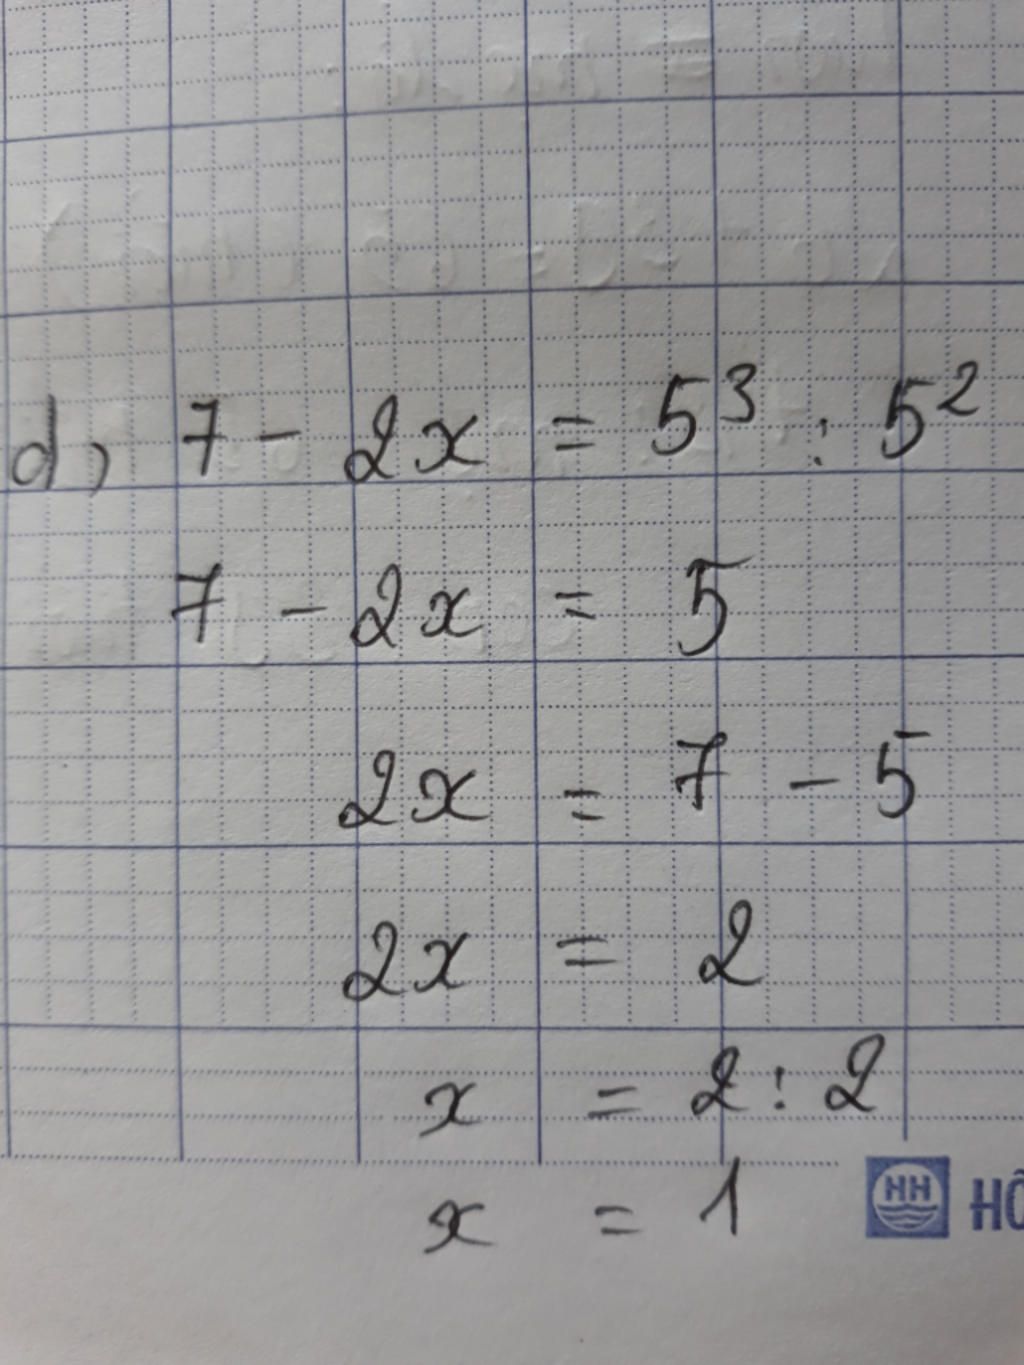 d, 7 - 2x = 5³ : 5²
7 - 2x = 5
2x = 7 - 5
2x = 2
x = 2 : 2
x = 1
HH HÔ